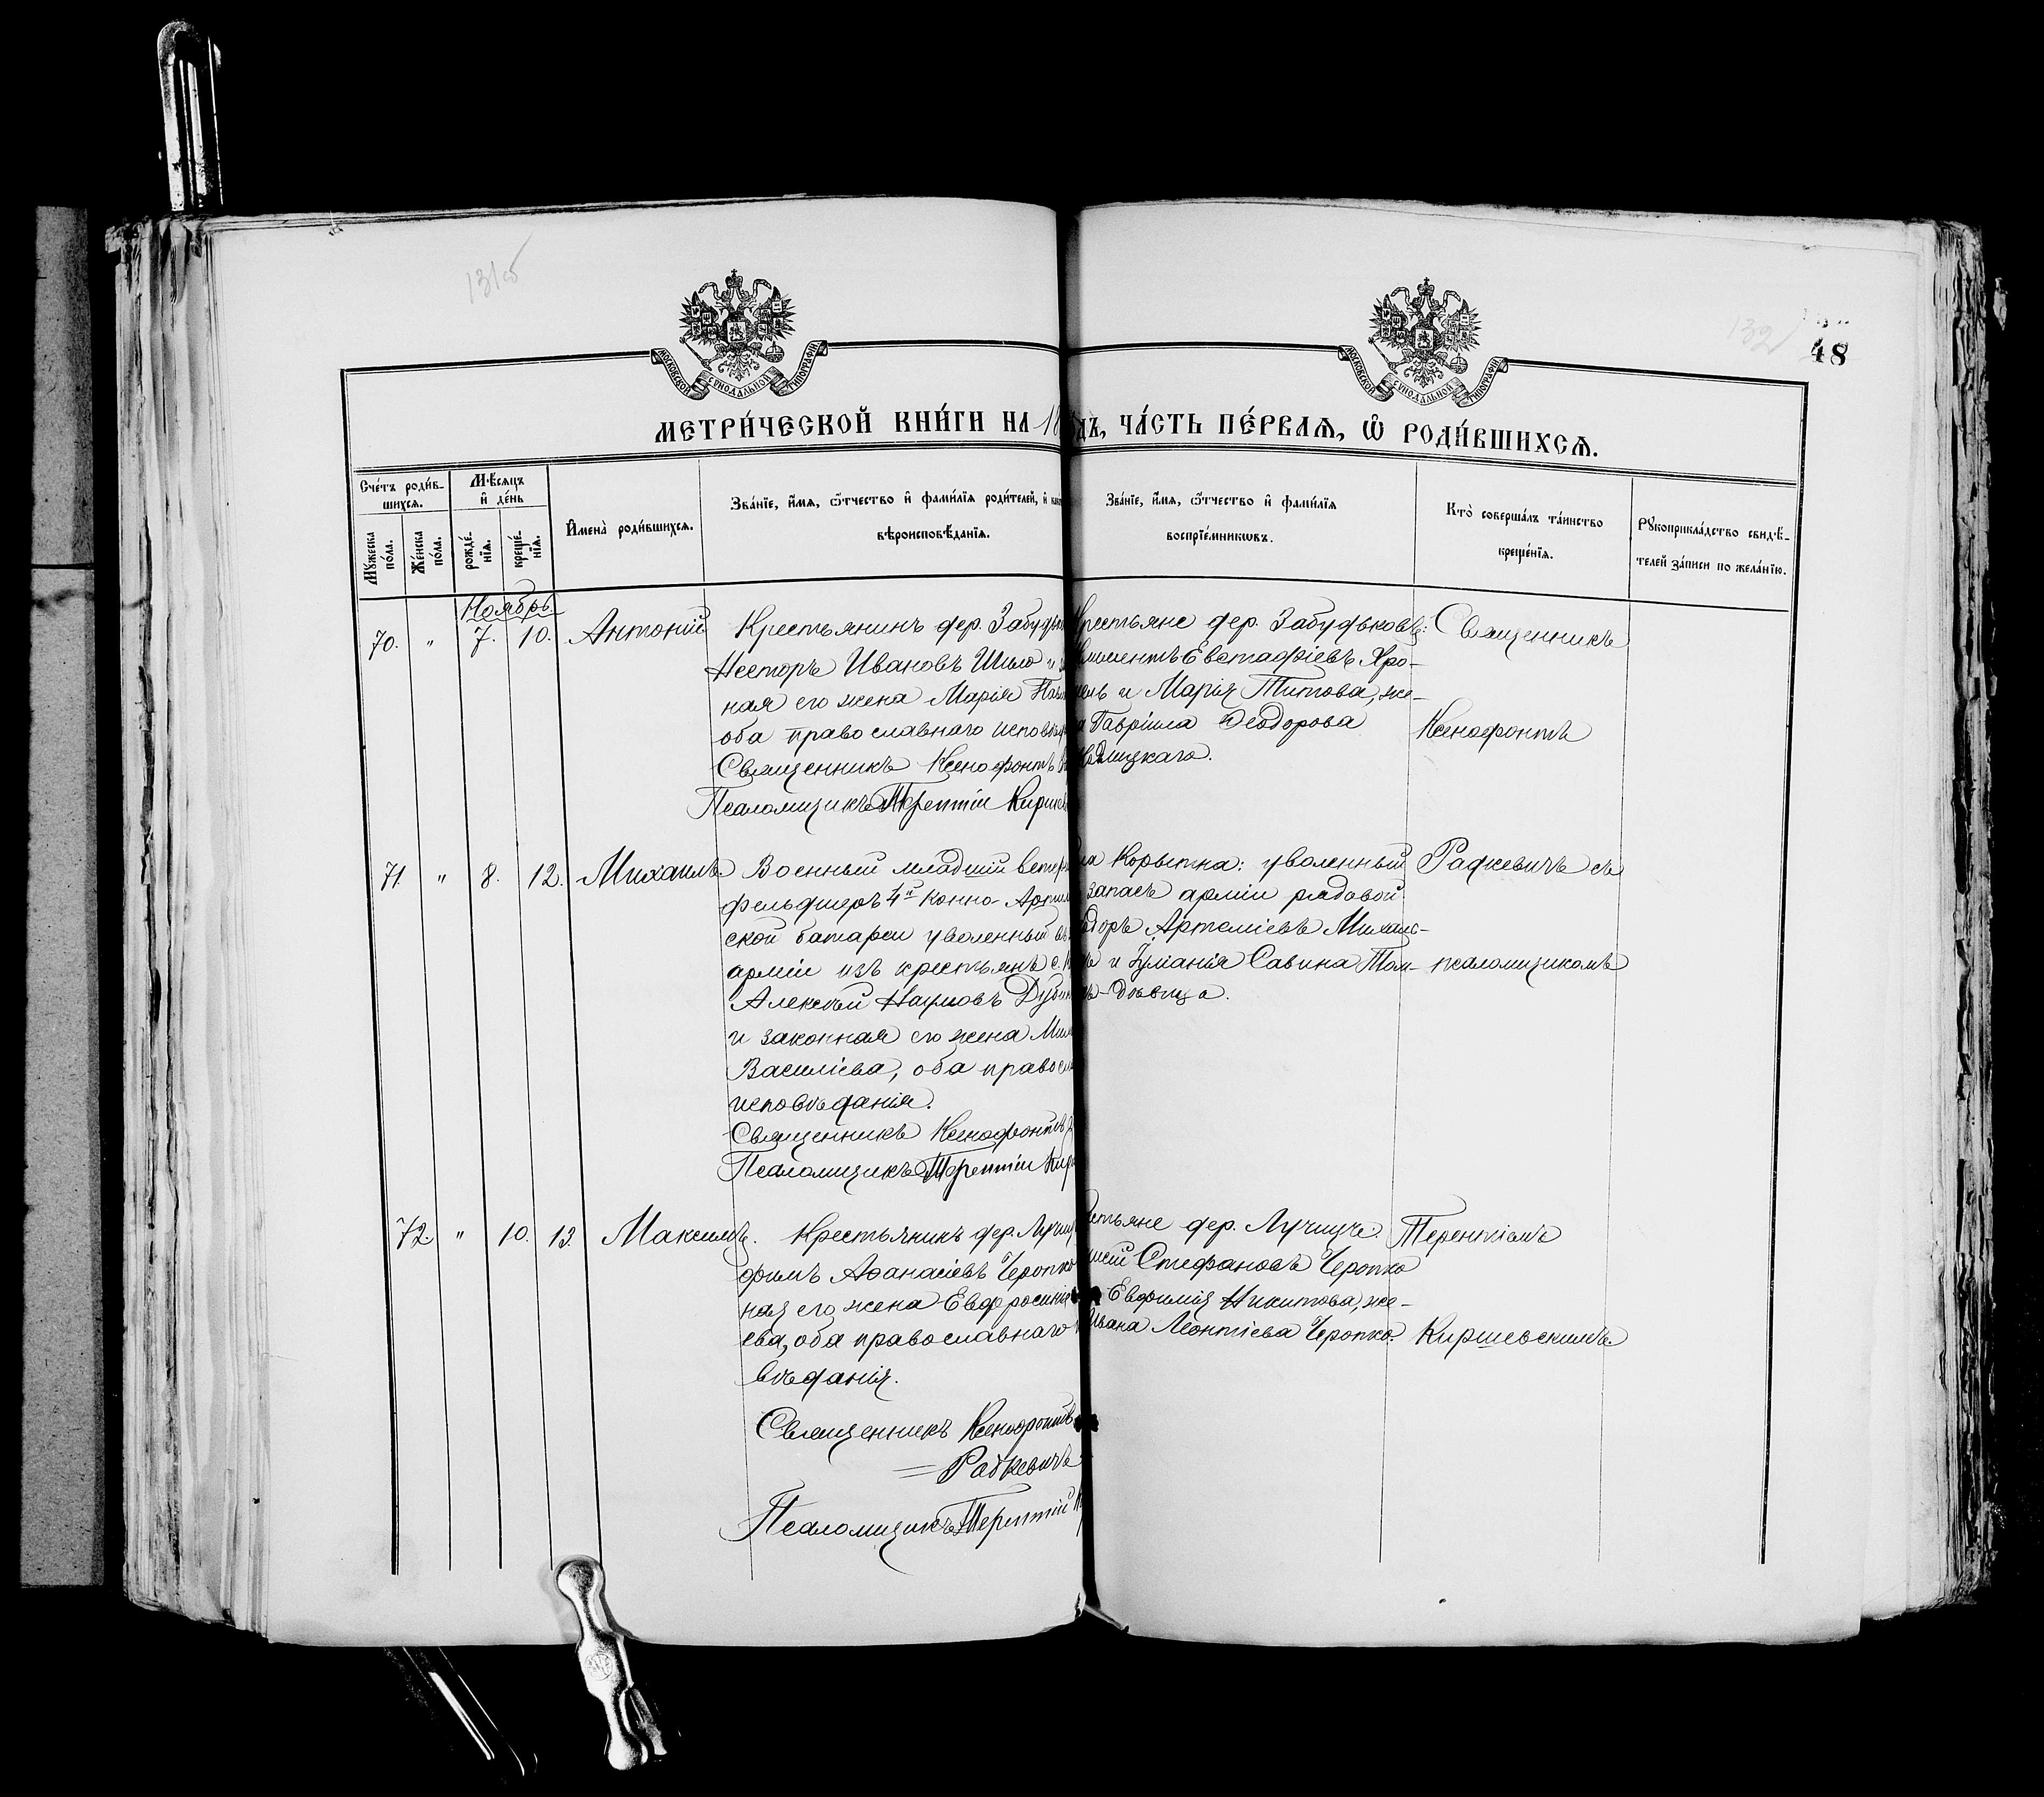 131об
132
48
МОСКОВСКОЙ СѴНОДАЛЬНОЙ ТИПОГРАФІИ
МОСКОВСКОЙ СѴНОДАЛЬНОЙ ТИПОГРАФІИ
МЕТРИ́ЧЕСКОЙ КНИ́ГИ НА 18
ДЪ, ЧА́СТЬ ПЕ́РВАѦ, Ѿ РОДИ́ВШИХСѦ.
Сче́тъ роди́в-
шихсѧ.
Мꙋжеска по́ла.
Же́нска по́ла.
Мѣ́сѧцъ и҆ де́нь
рожде́нїѧ.
креще́нїѧ.
И҆мена̀ роди́вшихсѧ.
Зва́нїе, и҆́мѧ, ѻ҆́тчество и҆ фами́лїѧ роди́телей, и҆
вѣроисповѣ́данїѧ.
Зва́нїе, и҆́мѧ, ѻ҆́тчество и҆ фами́лїѧ
воспрїе́мникѡвъ.
Кто̀ соверша́лъ та́инство
креще́нїѧ.
Рꙋкоприкла́дство свидѣ́-
телей за́писи по жела́нїю.
Ноябрь
70. " 7. 10. Антоній
Крестьянинъ дер. Забудьк
Несторъ Ивановъ Шило и
ная его жена Марія
оба православнаго исповѣд
Священникъ Ксенофонтъ
Псаломщикъ Терентій Кирше
Крестьяне дер. Забудьковъ:
Климентъ Евстафіевъ Хро-
и Марія Титова, же-
на Гавріила Ѳеодорова
Священникъ
Ксенофонтъ
71. " 8. 12. Михаилъ.
Военный младшій ветер
фельдшеръ 4й Конно-Артил
ской батареи уволенный въ
арміи изъ крестьянъ с.
Алексѣй Наумовъ
и законная его жена
Василіева, оба правосл
исповѣданія.
Священникъ Ксенофонтъ
Псаломщикъ Терентій Кир
Корытна: уволенный
запасъ арміи рядовой
Артеміевъ Михале-
и Іуліанія Савина Том-
дѣвица.
Радкевичъ съ
псаломщикомъ
72. " 10. 13. Максимъ.
Крестьянинъ дер. Лучиц
фимъ Аѳанасіевъ Черопко
ная его жена Евфросинія
ева, оба православнаго
вѣданія.
Священникъ Ксенофонтъ
Радкевичъ
Псаломщикъ Терентій
стьяне дер. Лучицъ:
Стефановъ Черопко
Евфимія Никитова, же-
Ивана Леонтіева Черопко.
Терентіемъ
Киршевскимъ.